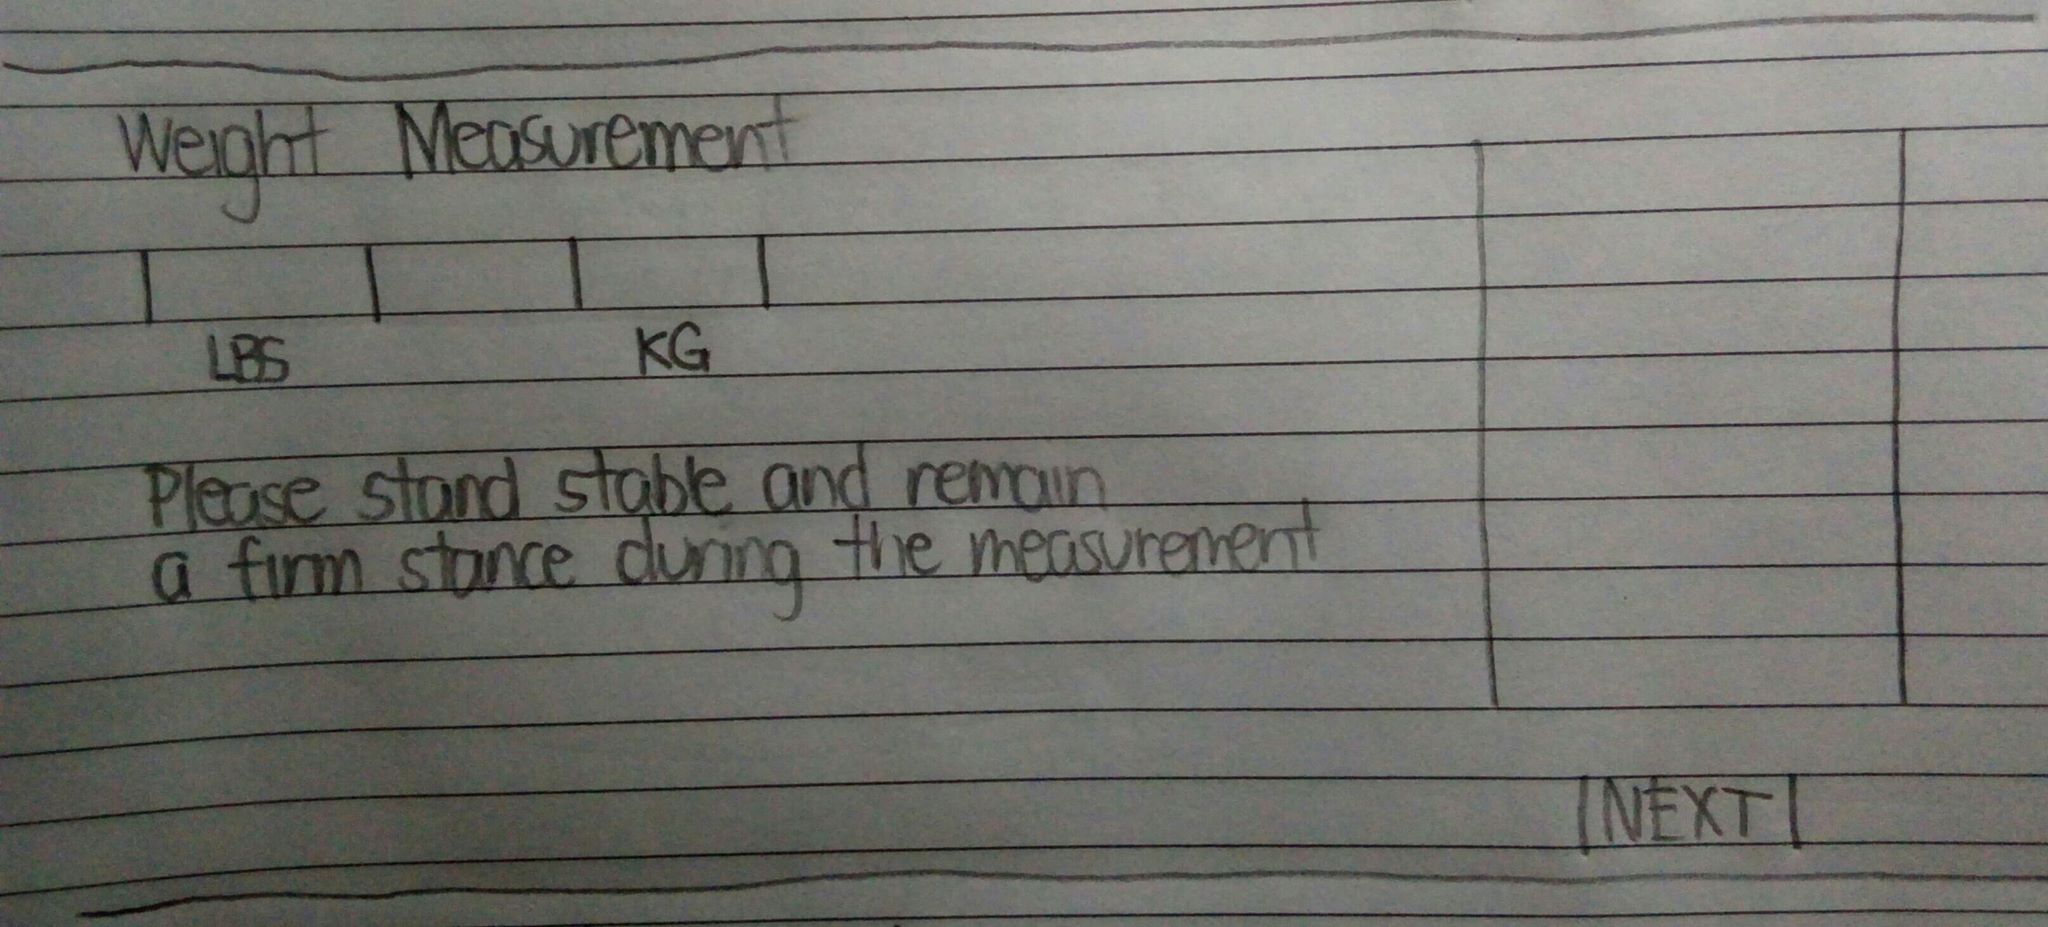 Weight Measurement
LBS KG
Please stand stable and remain
a firm stance during the measurement
NEXT